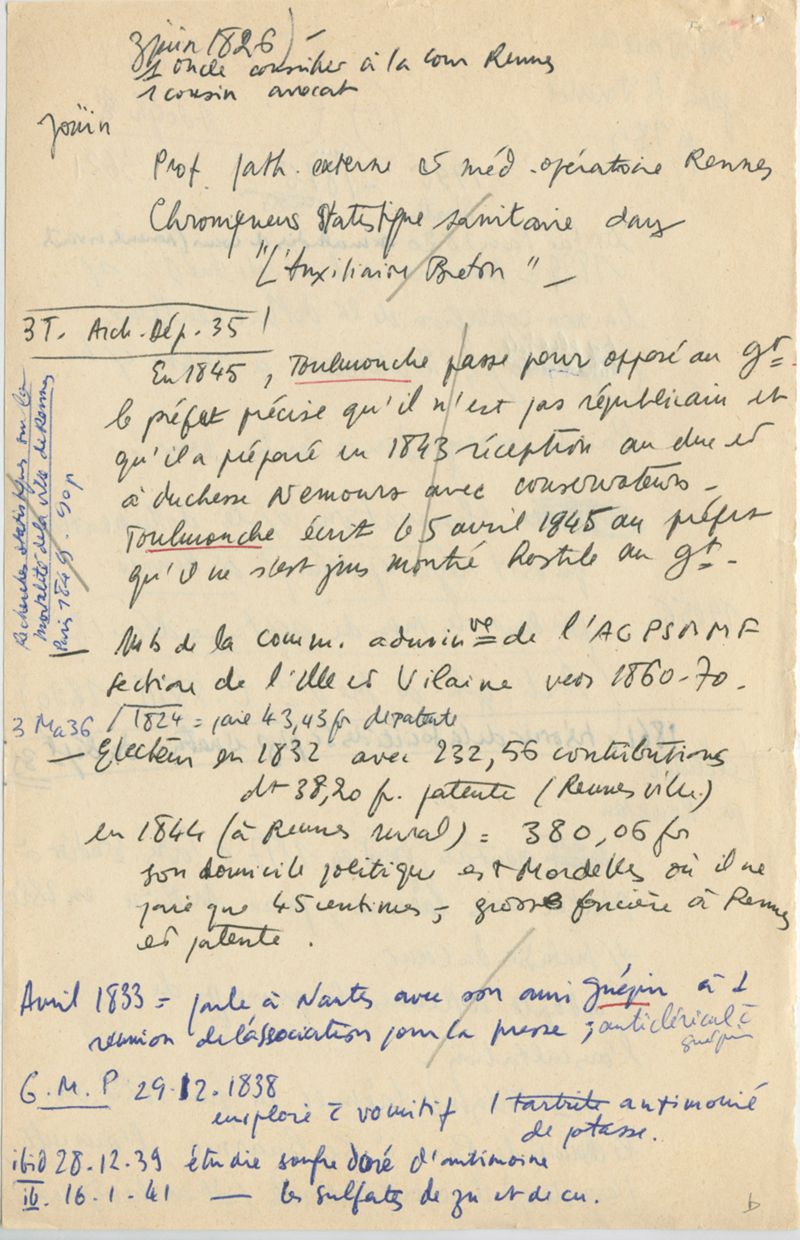 3 juin 1826) —
1 oncle conseiller à la cour Rennes
1 cousin avocat
Joüin
Prof. path. externe et méd. opératoire Rennes
Chroniqueur Statistique sanitaire dans
"L'Auxiliaire Breton" —
3T. Arch. Dép. 35 !
En 1845, Toulmonche passe pour opposé au gt
le préfet précise qu'il n'est pas républicain et
qu'il a préparé en 1843 réception au duc et
à duchesse Nemours avec conservateurs -
Toulmonche écrit le 5 avril 1845 au préfet
qu'il ne s'est jms montré hostile au gt. -
Recherches statistiques sur la
mortalité de la ville de Rennes
Paris 1849. 90 p
Mb de la comm. adminve de l'AGPSMMF
section de l'Ille et Vilaine vers 1860-70.
3 Ma 36 / 1824 = paie 43,43 fr de patente
— Electeur en 1832 avec 232,56 contributions
dt 38,20 fr. patente (Rennes ville)
en 1844 (à Rennes rural) = 380,06 fr
son domicile politique est Mordelles où il ne
paie que 45 centimes, grosse foncière à Rennes
et patente.
Avril 1833 = parle à Nantes avec son ami Guépin à 1
réunion de l'association pour la presse ; anticlérical c̄
guépin
G.M.P 29.12.1838
emploie c̄ vomitif 1 tartrite antimonié
de potasse.
ibid 28.12.39 étudie soufre doré d'antimoine
ib. 16.1.41 — les sulfates de zn et de cu.
b